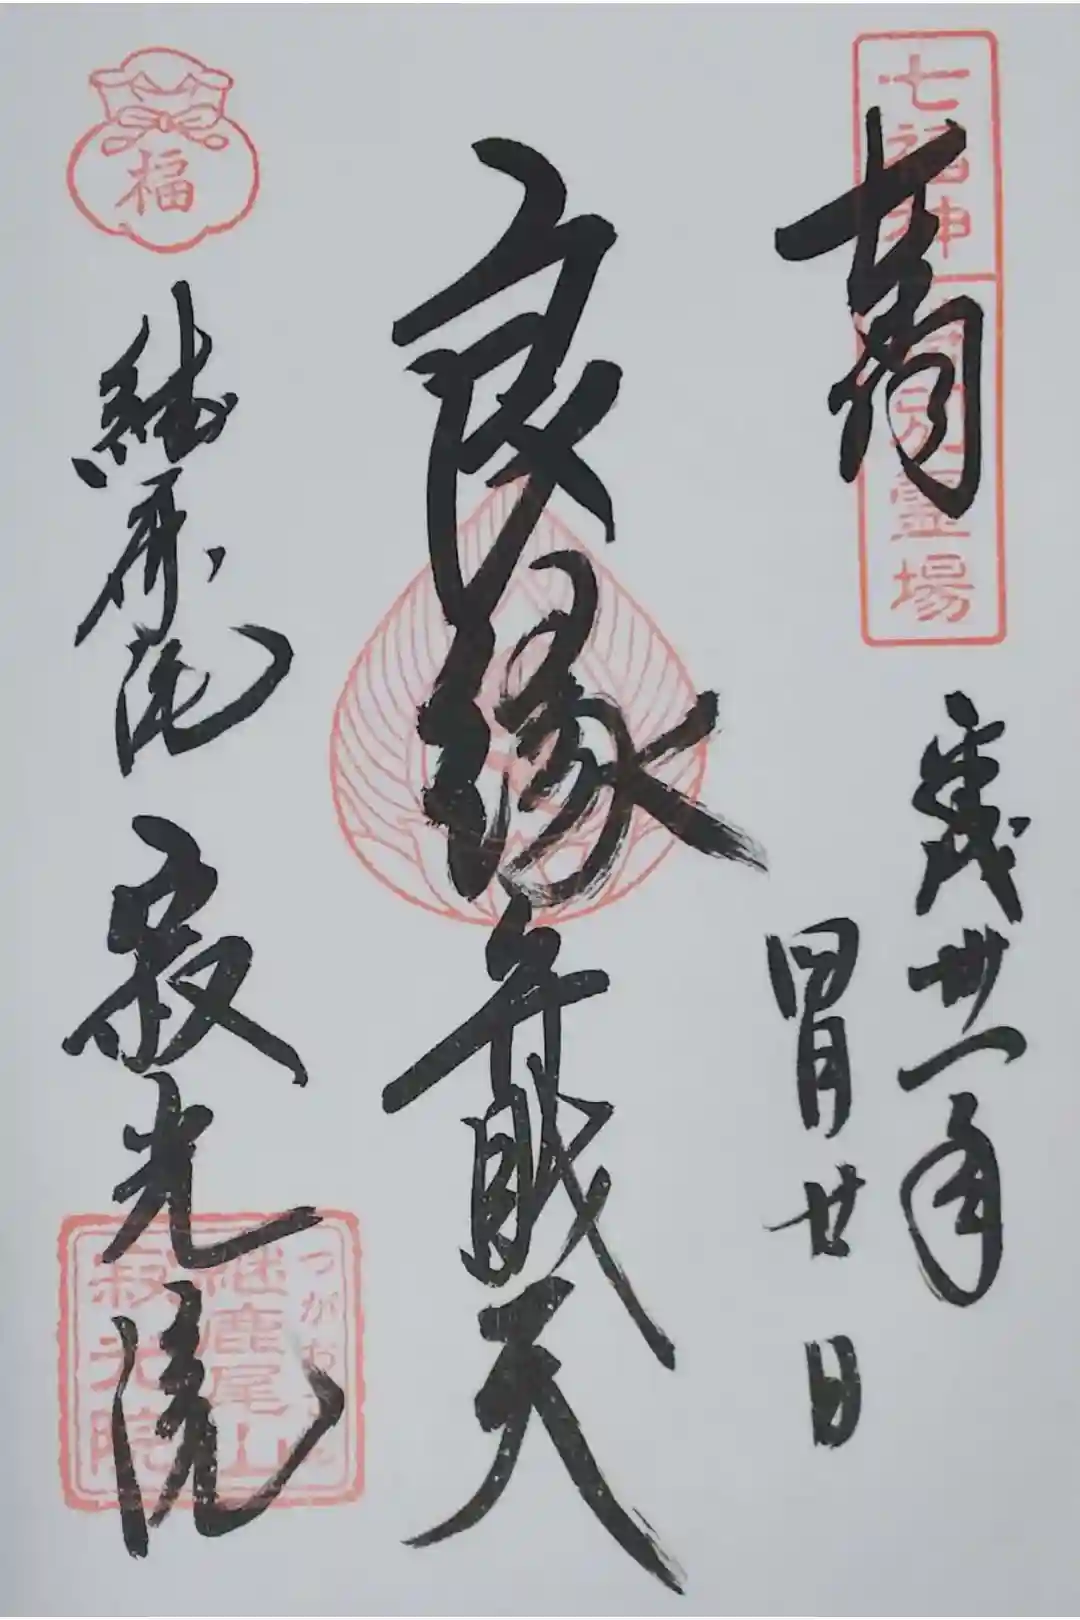 七福神
別霊場
平成卅一年
四月廿日
良縁弁財天
福
継鹿尾
寂光院
つがお
継鹿尾山
寂光院